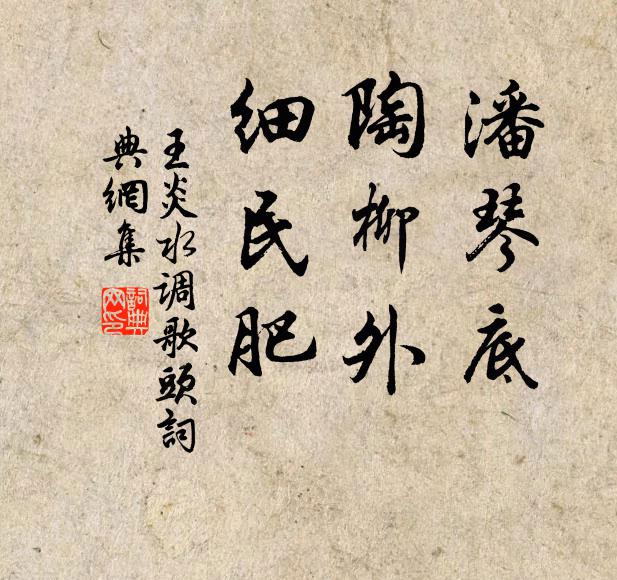 潘琴底
陶柳外
细民肥
王炎水调歌頭詞
典網集
詞典
网印